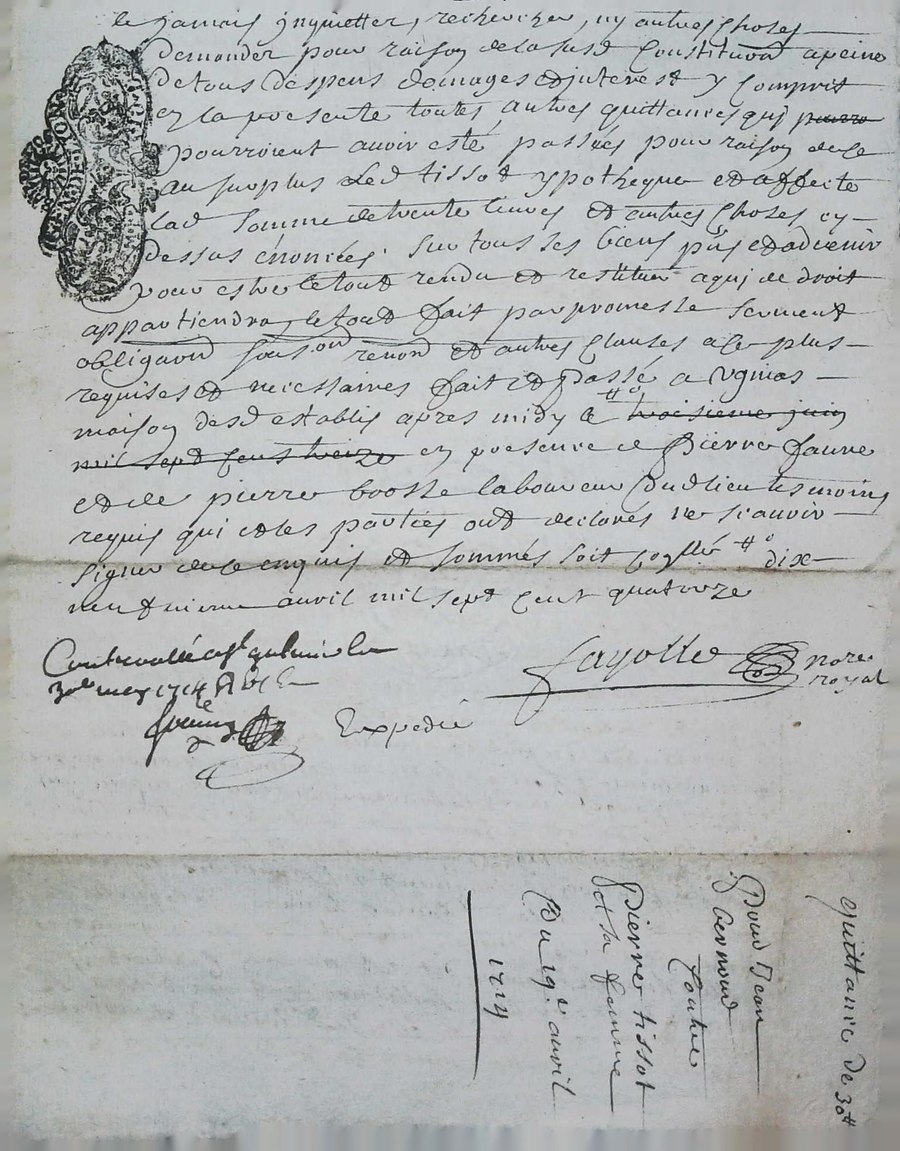 le jamais inquietter, rechercher, ny autres choses
demander pour raison de la susd constituon a peine
de tous despens domages et interest y comprit
en la presente toutes autres quittances qui pourro
pourroient avoir esté passées pour raison de ce
au surplus led tissot ypotheque et affecte
lad somme de trente livres et autres choses cy
dessus énoncées sur tous ses biens pñs et advenir
pour estre le tout rendu et restitué a qui de droit
appartiendra, le tout fait par promesse serment
obligaon renon et autres clauses a ce plus
requises et necessaires fait et passé a Ugnias
maison desd establis apres midy le #o troisieme juin
mil sept cens treize en presence de Pierre faure
et de pierre bosse laboureur dud lieu tesmoins
requis qui et les parties ont declarés ne scavoir
signer de ce enquis et sommés soit #o dix
neufvieme avril mil sept cent quatorze
Controollé
30e may 1714
fayolle nore royal
Expedié
quittance de 30#
Pour Jean
bernoud
Contre
Pierre tissot
et sa femme
Du 19e avril
1714